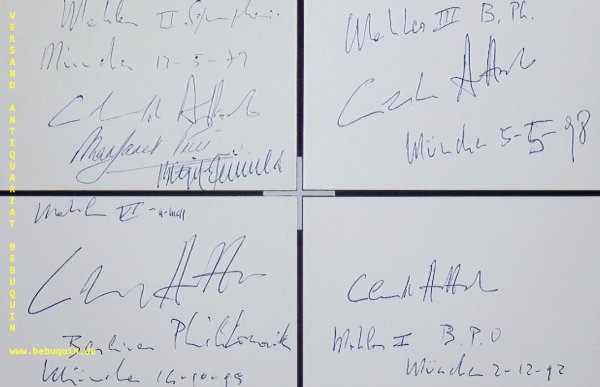 VERSAND ANTIQUARIAT BEBUQUIN
www.bebuquin.de
Mahler II Symphonie
München 13-5-
Claudio Abbado
Margaret Price
Mahler III B. Ph.
Claudio Abbado
München 5-5-98
Mahler VI - a-moll
Claudio Abbado
Berliner Philharmonik
München
Claudio Abbado
Mahler B.P.O
München 2-12-92